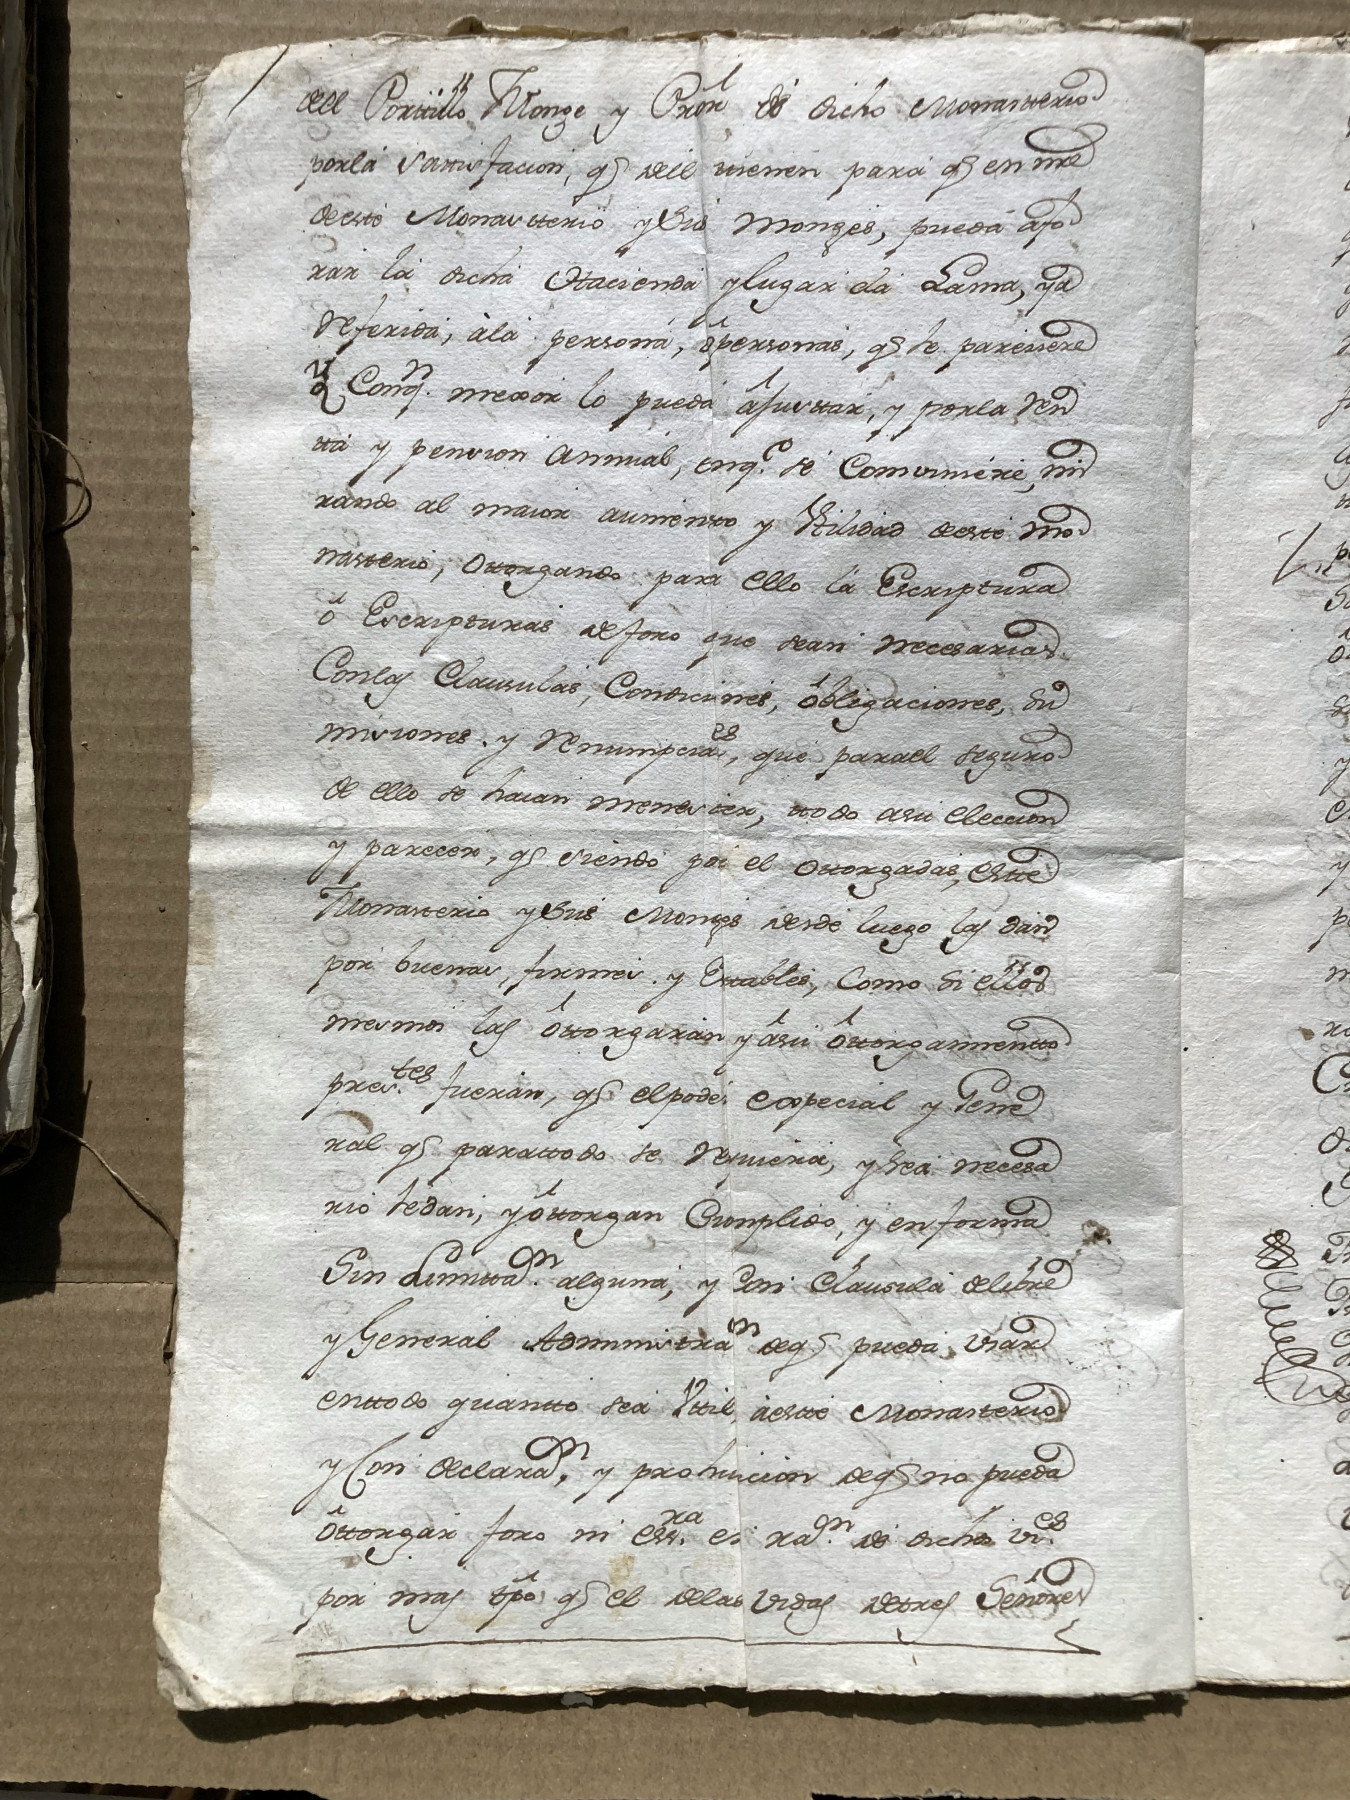 del Portillo Monge y Pror de dicho Monasterio
porla sattisfacion, q̃ del tienen para q̃ en nre
deste Monastterio y sus Monges, pueda afo
rar la dicha Hacienda y lugar da Lama, ya
referida, àla persona, ò personas, q̃ le pareziere
y Conq.n mexor lo pueda âjusttar, y porla ren
tta y pension annual, enq.e se Comviniere, mi
rando al maior aumentto y Utilidad deste Mo
nasterio, Ottorgando para ello la Escriptura
ô Escripturas de foro que sean necesarias
Conlas Clausulas, Condiciones, òbligaciones, su
misiones y renumpcia.es, que parael seguro
de ello se haian menester, ttodo asu eleccion
y parecer, q̃ siendo por el Ottorgadas, estte
Monasterio y sus Monges desde luego las dan
por buenas, firmes y Estables, Como si ellos
mesmos las ôttorgaran y âsu ôttorgamientto
pres.tes fueran, q̃ elpoder expecial y Gene
ral q̃ parattodo se requiera, y sea necesa
rio ledan, y ôttorgan Cumplido, y en forma
Sin Limitta.on alguna, y Con Clausula de libre
y General Administra.on deq̃ pueda usar
enttodo quantto sea Uttil, aestte Monasterio
y Con declara.on, y prohivicion deq̃ no pueda
ôttorgar foro ni ess.ra en ra.on de dichos vi.es
por mas tpo q̃ el delas vidas detres Señores